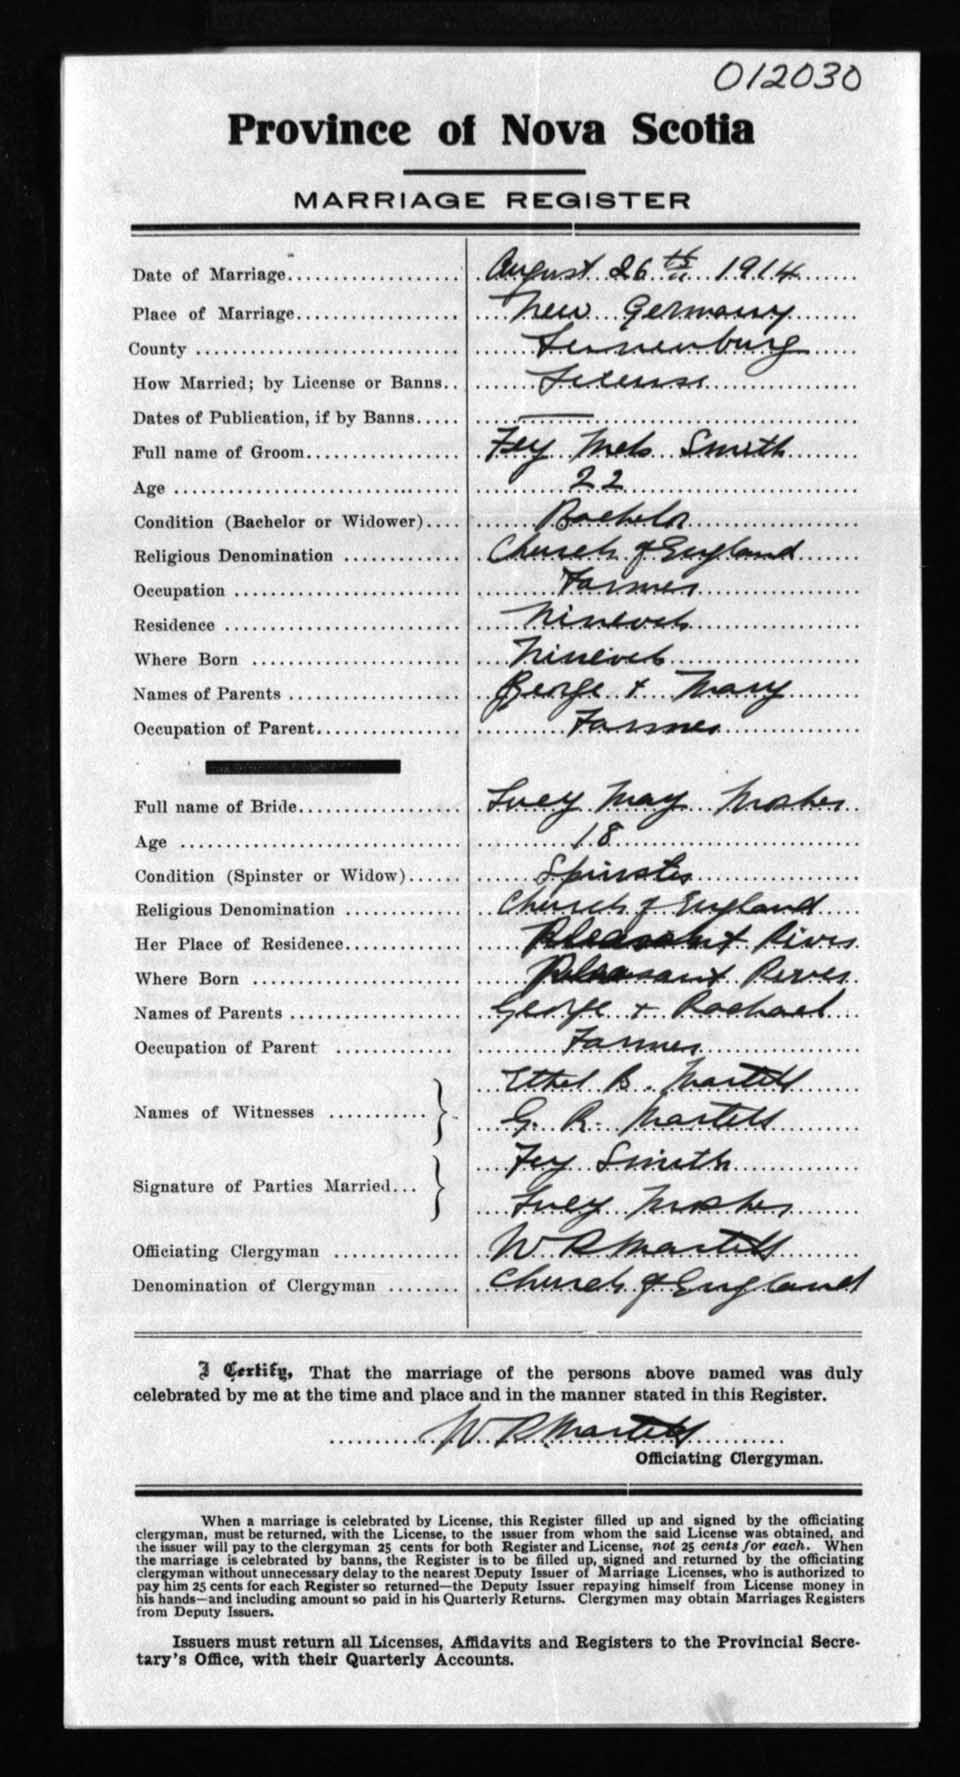 012030
Province of Nova Scotia
MARRIAGE REGISTER
Date of Marriage.................. August 26th 1914
Place of Marriage................. New Germany
County ............................ Lunenburg
How Married; by License or Banns.. License
Dates of Publication, if by Banns..... —
Full name of Groom................. Smith
Age ............................... 22
Condition (Bachelor or Widower).... Bachelor
Religious Denomination ............ Church of England
Occupation ........................ Farmer
Residence ......................... Nineveh
Where Born ........................ Nineveh
Names of Parents .................. George + Mary
Occupation of Parent............... Farmer
Full name of Bride................. Lucy May
Age ............................... 18
Condition (Spinster or Widow)...... Spinster
Religious Denomination ............ Church of England
Her Place of Residence............. Pleasant River
Where Born ........................ Pleasant River
Names of Parents .................. George + Rachael
Occupation of Parent .............. Farmer
Ethel B. Martell
Names of Witnesses ...........}
G. R. Martell
Smith
Signature of Parties Married...}
Lucy
Officiating Clergyman ............. W R Martell
Denomination of Clergyman ........ Church of England
I Certify, That the marriage of the persons above named was duly
celebrated by me at the time and place and in the manner stated in this Register.
W R Martell
Officiating Clergyman.
When a marriage is celebrated by License, this Register filled up and signed by the officiating
clergyman, must be returned, with the License, to the issuer from whom the said License was obtained, and
the issuer will pay to the clergyman 25 cents for both Register and License, not 25 cents for each. When
the marriage is celebrated by banns, the Register is to be filled up, signed and returned by the officiating
clergyman without unnecessary delay to the nearest Deputy Issuer of Marriage Licenses, who is authorized to
pay him 25 cents for each Register so returned—the Deputy Issuer repaying himself from License money in
his hands—and including amount so paid in his Quarterly Returns. Clergymen may obtain Marriages Registers
from Deputy Issuers.
Issuers must return all Licenses, Affidavits and Registers to the Provincial Secre-
tary's Office, with their Quarterly Accounts.